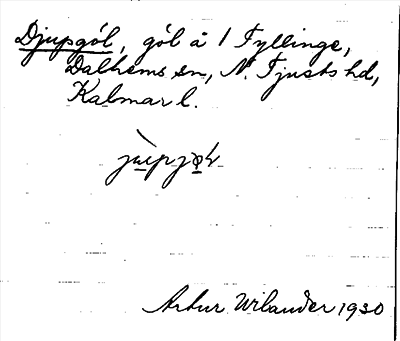 Djupgöl, göl å 1 Tyllinge,
Dalhems sn, N. Tjusts hd,
Kalmar l.
Artur Wilander 1930